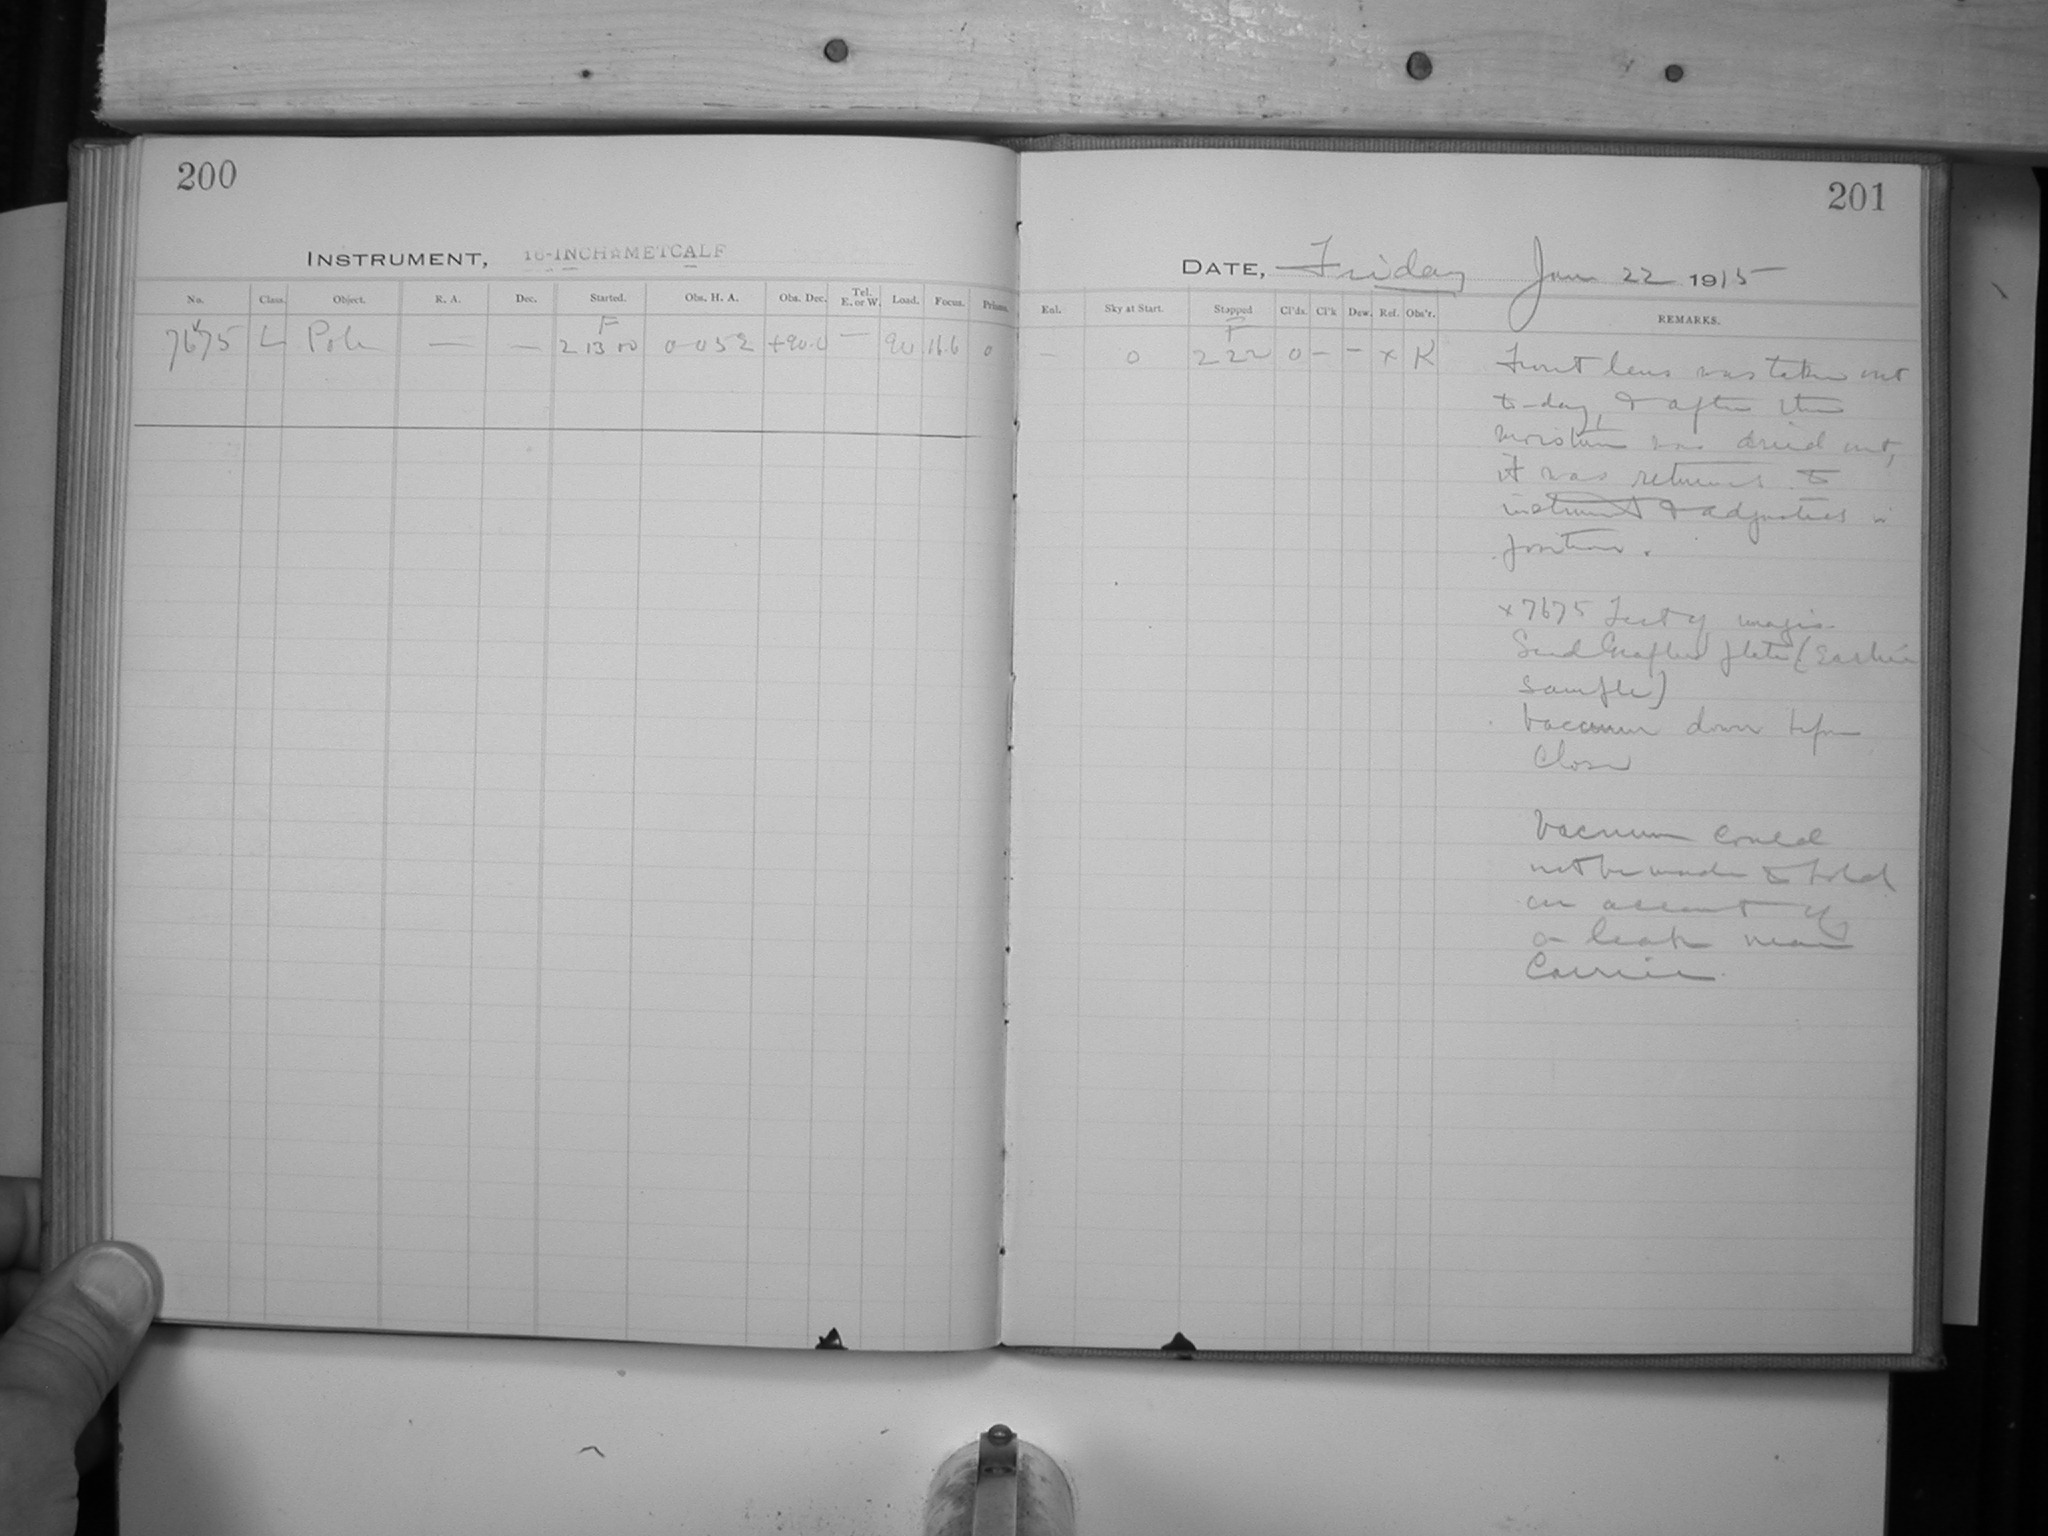 200
201
INSTRUMENT, 16-INCH METCALF
DATE, Friday Jan 22 1915
No. Class. Object. R. A. Dec. Started. Obs. H. A. Obs. Dec. Tel. E. or W. Load. Focus. Prisms.
Enl. Sky at Start. Stopped Cl'ds. Cl'k Dew. Ref. Obs'r. REMARKS.
F
7675 L Pole — — 2 13 00 0 052 +90.0 — 90 16.6 0
F
— 0 2 22 0 – – x K
Front lens was taken out
to-day, & after the
moisture was dried out,
it was returned to
instrument & adjusted in
position.
x7675 Test of images
Seed Graflex plate (Eastman
sample)
Vacuum down before
close
Vacuum could
not be made to hold
on account of
a leak near
Carrier.